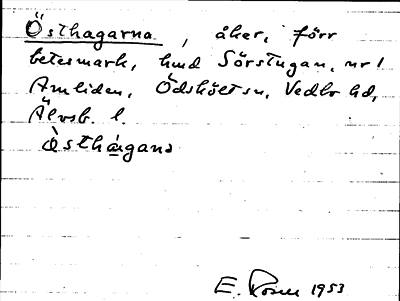 Östhagarna, åker, förr
betesmark, hmd Sörstugan, nr 1
Amliden, Ödskölt sn, Vedbo hd,
Älvsb. l.
E. Rosen 1953